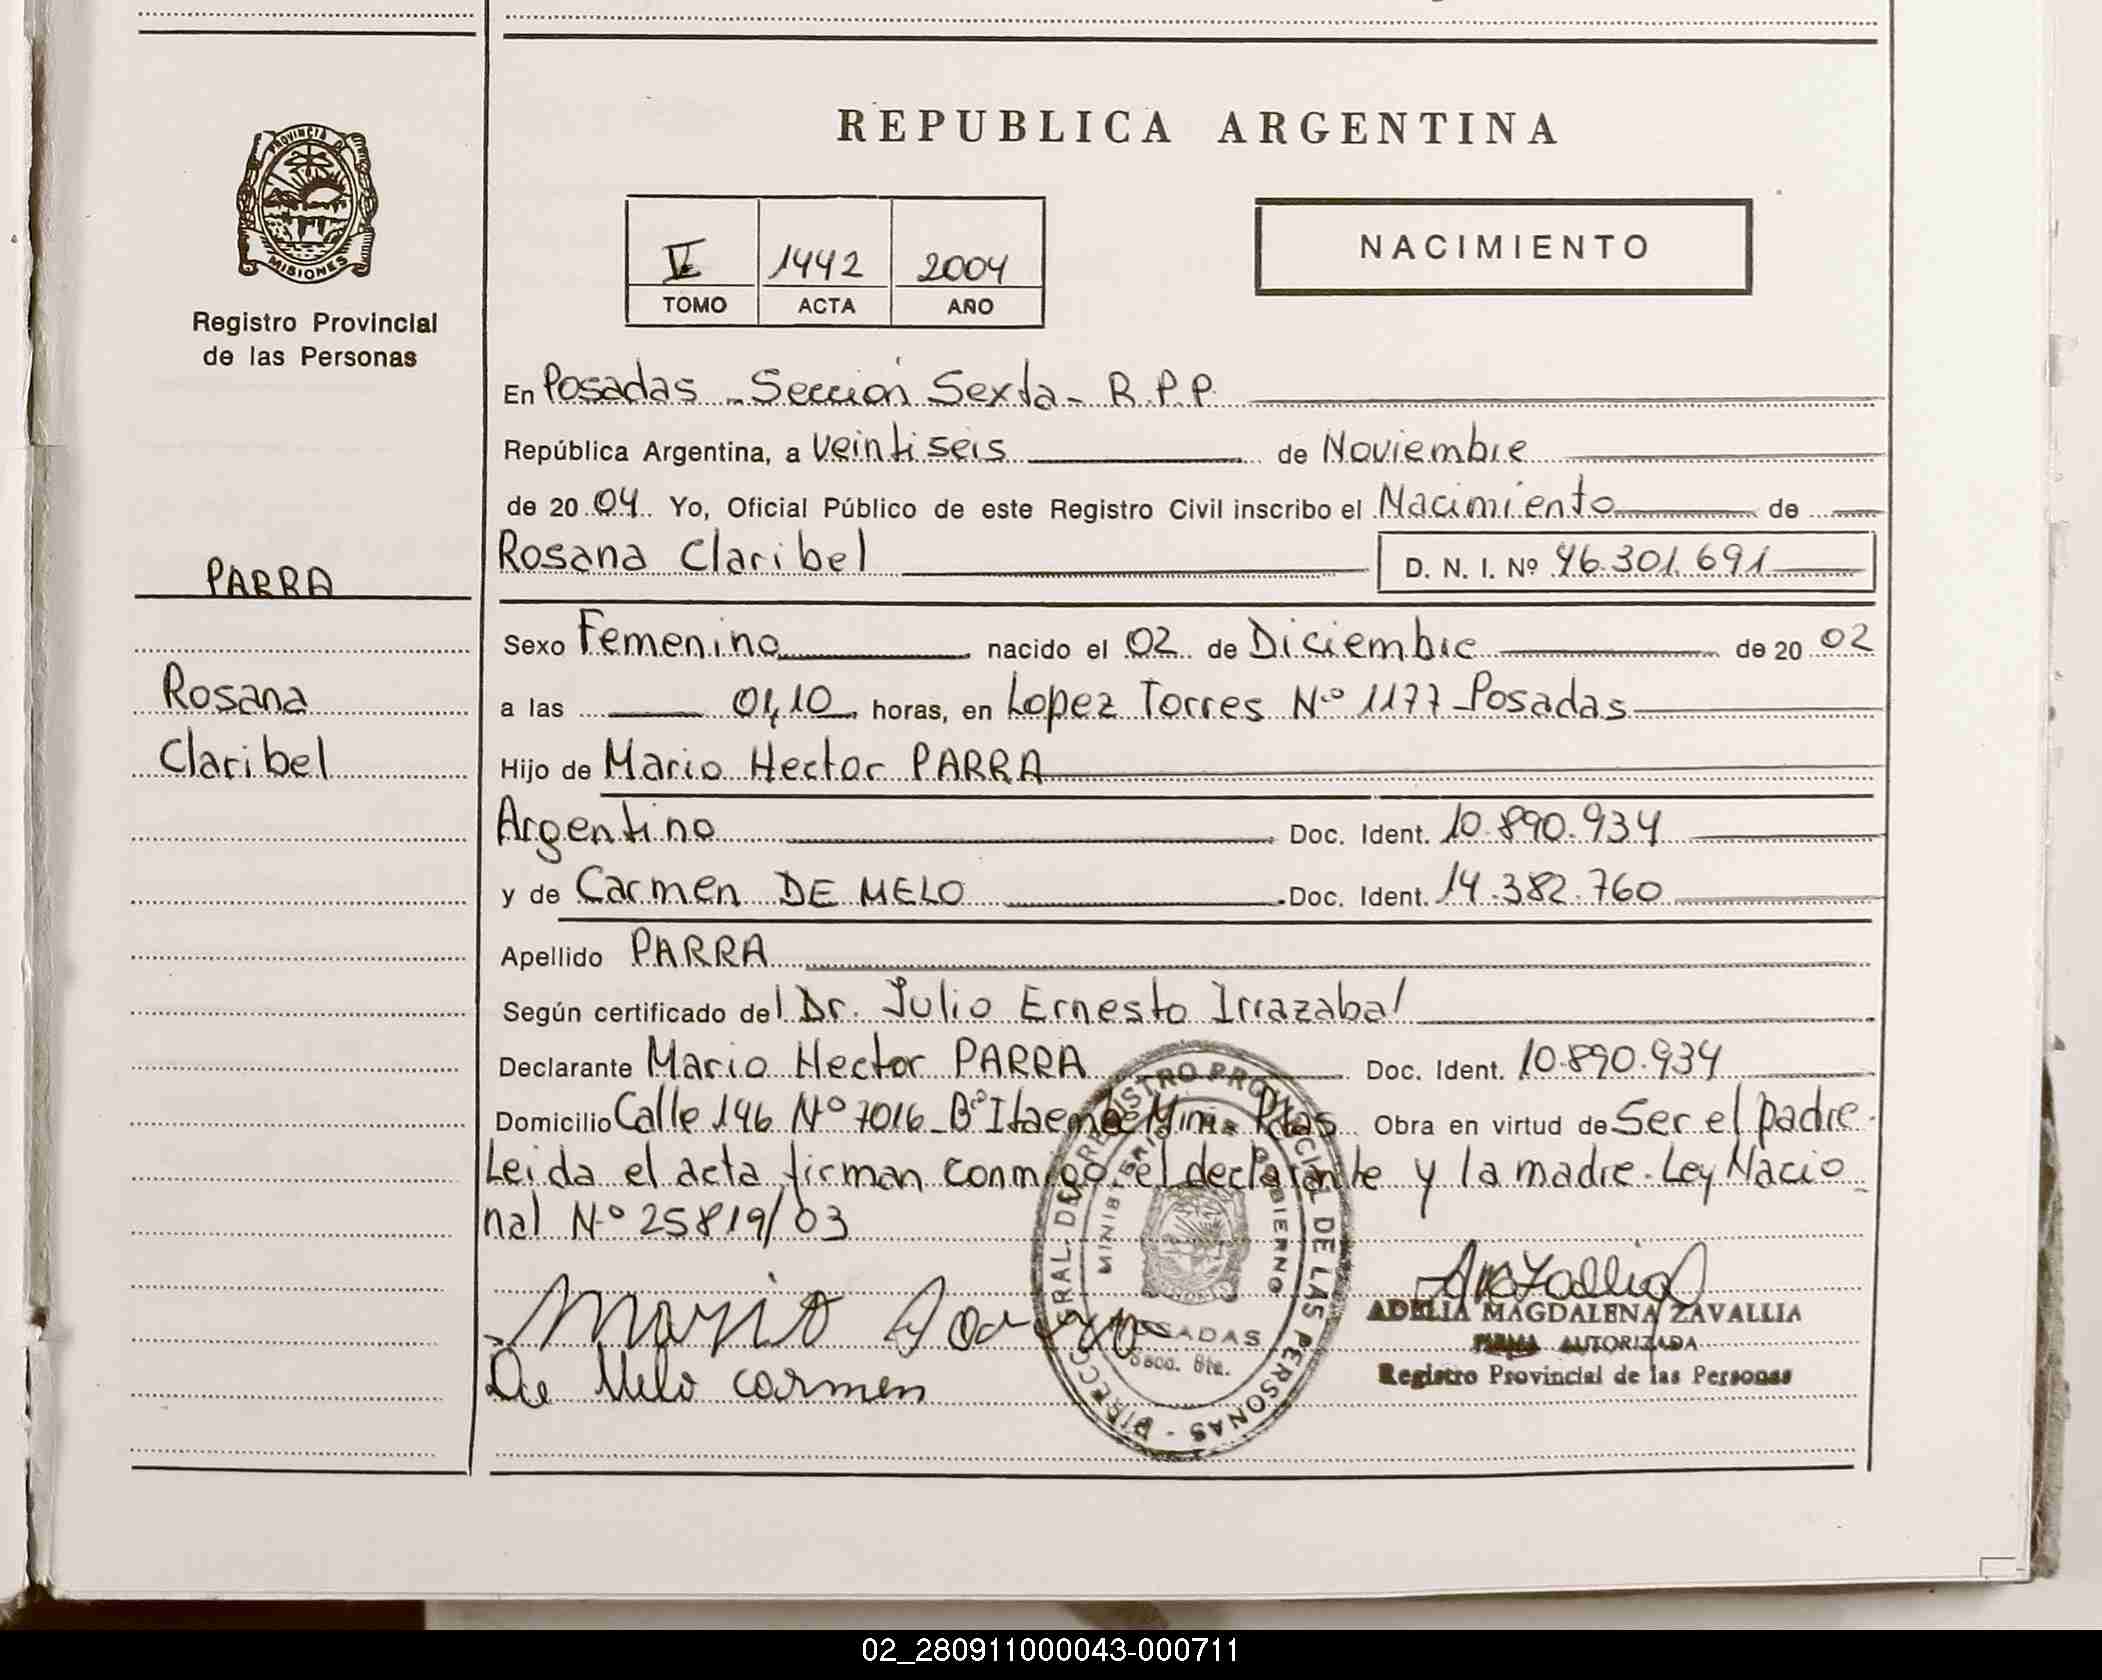 PROVINCIA DE
MISIONES
Registro Provincial
de las Personas
PARRA
Rosana
Claribel
REPUBLICA ARGENTINA
1442 2004
TOMO ACTA AÑO
NACIMIENTO
En Posadas - Sección Sexta - R.P.P.
República Argentina, a veintiseis de Noviembre
de 2004 Yo, Oficial Público de este Registro Civil inscribo el Nacimiento de
Rosana Claribel D. N. I. Nº 46.301.691
Sexo Femenino nacido el 02 de Diciembre de 2002
a las 01,10 horas, en Lopez Torres Nº 1177 - Posadas
Hijo de Mario Hector PARRA
Argentino Doc. Ident. 10.890.934
y de Carmen DE MELO Doc. Ident. 14.382.760
Apellido PARRA
Según certificado del Dr. Julio Ernesto Irrazabal
Declarante Mario Hector PARRA Doc. Ident. 10.890.934
Domicilio Calle 146 Nº 7016 - Bº Itaembe Mini - Pdas Obra en virtud de Ser el padre.
Leida el acta firman conmigo el declarante y la madre. Ley Nacio_
nal Nº 25819/03
Mario
De Melo Carmen
DIRECC GRAL. DE REGISTRO PROVINCIAL DE LAS PERSONAS
MINISTERIO GOBIERNO
POSADAS
Secc. 6ta.
ADELIA MAGDALENA ZAVALLIA
FIRMA AUTORIZADA
Registro Provincial de las Personas
02_280911000043-000711